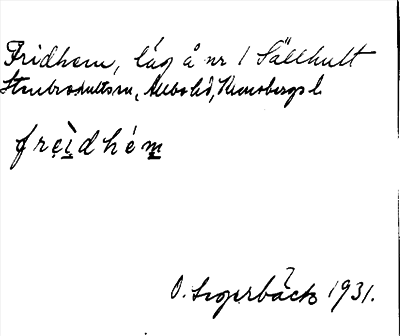 Fridhem, låg å nr 1 Sällhult
Stenbrohultssn, Allbo hd, Kronobergs l.
frẹìdhém
O. Segerbäck 1931.